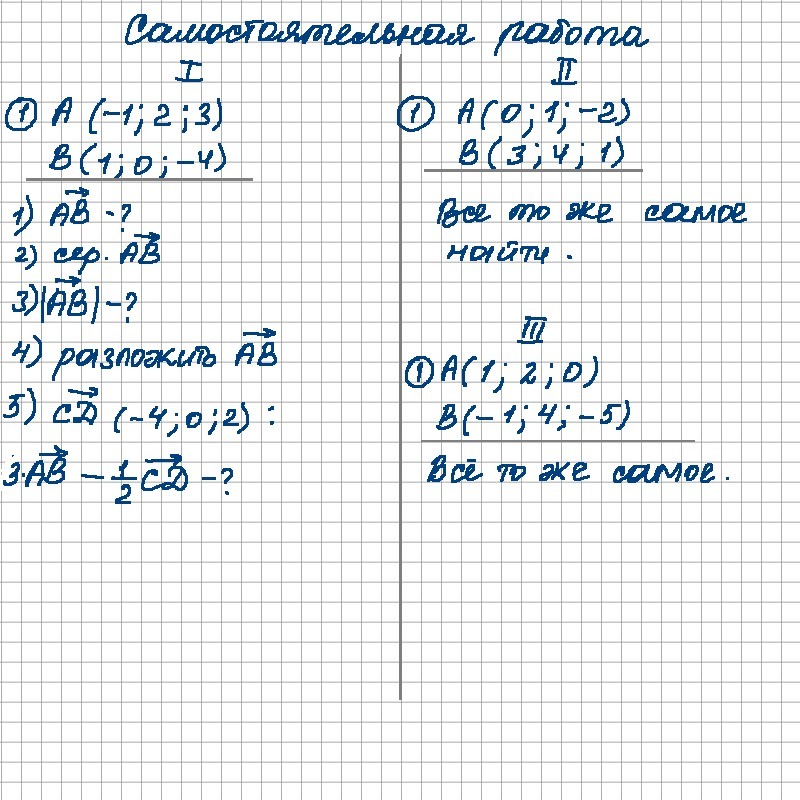 Самостоятельная работа
I
① A (-1; 2; 3)
B (1; 0; -4)
1) AB⃗ -?
2) сер. AB⃗
3) |AB⃗| -?
4) разложить AB⃗
5) CD⃗ (-4; 0; 2) :
3·AB⃗ - 1/2 CD⃗ -?
II
① A (0; 1; -2)
B (3; 4; 1)
Всё то же самое
найти.
III
① A(1; 2; 0)
B(-1; 4; -5)
Всё то же самое.